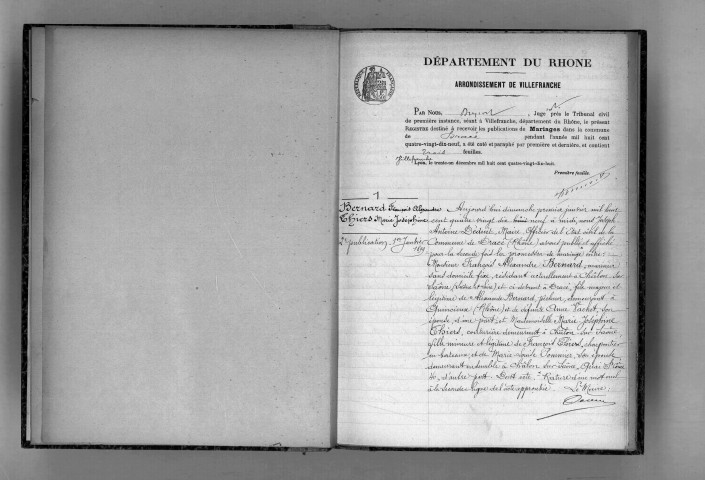 DÉPARTEMENT DU RHONE
ARRONDISSEMENT DE VILLEFRANCHE
PAR NOUS, Juge près le Tribunal civil
de première instance, séant à Villefranche, département du Rhône, le présent
REGISTRE destiné à recevoir les publications de Mariages dans la commune
de Dracé pendant l'année mil huit cent
quatre-vingt-dix-neuf, a été coté et paraphé par première et dernière, et contient
trois feuilles.
Villefranche
Lyon, le trente-un décembre mil huit cent quatre-vingt-dix-huit.
Première feuille.
1
Bernard François Alexandre
Thiers Marie Joséphine
2e publication 1er Janvier
1899
Aujourd'hui dimanche premier janvier mil huit
cent quatre vingt dix neuf à midi, nous Joseph
Antoine Déduit, Maire Officier de l'Etat civil de la
Commune de Dracé (Rhône) avons publié et affiché
pour la seconde fois les promesses de mariage entre
Monsieur François Alexandre Bernard, marinier
sans domicile fixe, résidant actuellement à Châlon sur
Saône et ci-devant à Dracé, fils majeur et
légitime de Alexandre Bernard, pêcheur, demeurant à
Quincieux (Rhône) et de défunte Anne Vachot, son
épouse d'une part, et Mademoiselle Marie Joséphine
Thiers, couturière demeurant à Châlon-sur-Saône
fille mineure et légitime de François Thiers, charpentier
en bateaux, et de Marie Pommier, son épouse
demeurant ensemble à Châlon sur Saône,
d'autre part. Dont acte. Rature d'un mot nul
à la seconde ligne de l'acte approuvée. Le Maire